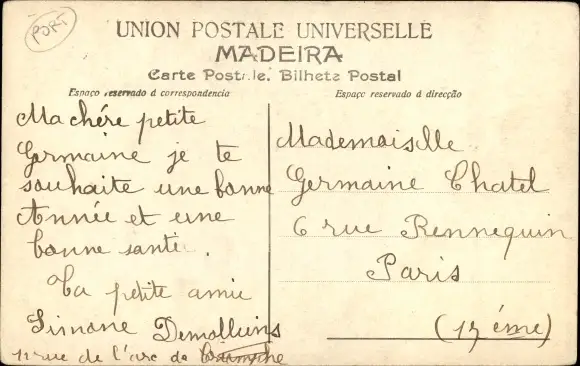 PORT
UNION POSTALE UNIVERSELLE
MADEIRA
Carte Postale. Bilhete Postal
Espaço reservado á correspondencia
Espaço reservado á direcção
Ma chére petite
Germaine je te
souhaite une bonne
Année et une
bonne santé.
Ta petite amie
Simone
12 rue de l'arc de
Mademoiselle
Germaine Chatel
6 rue Rennequin
Paris
(17 éme)